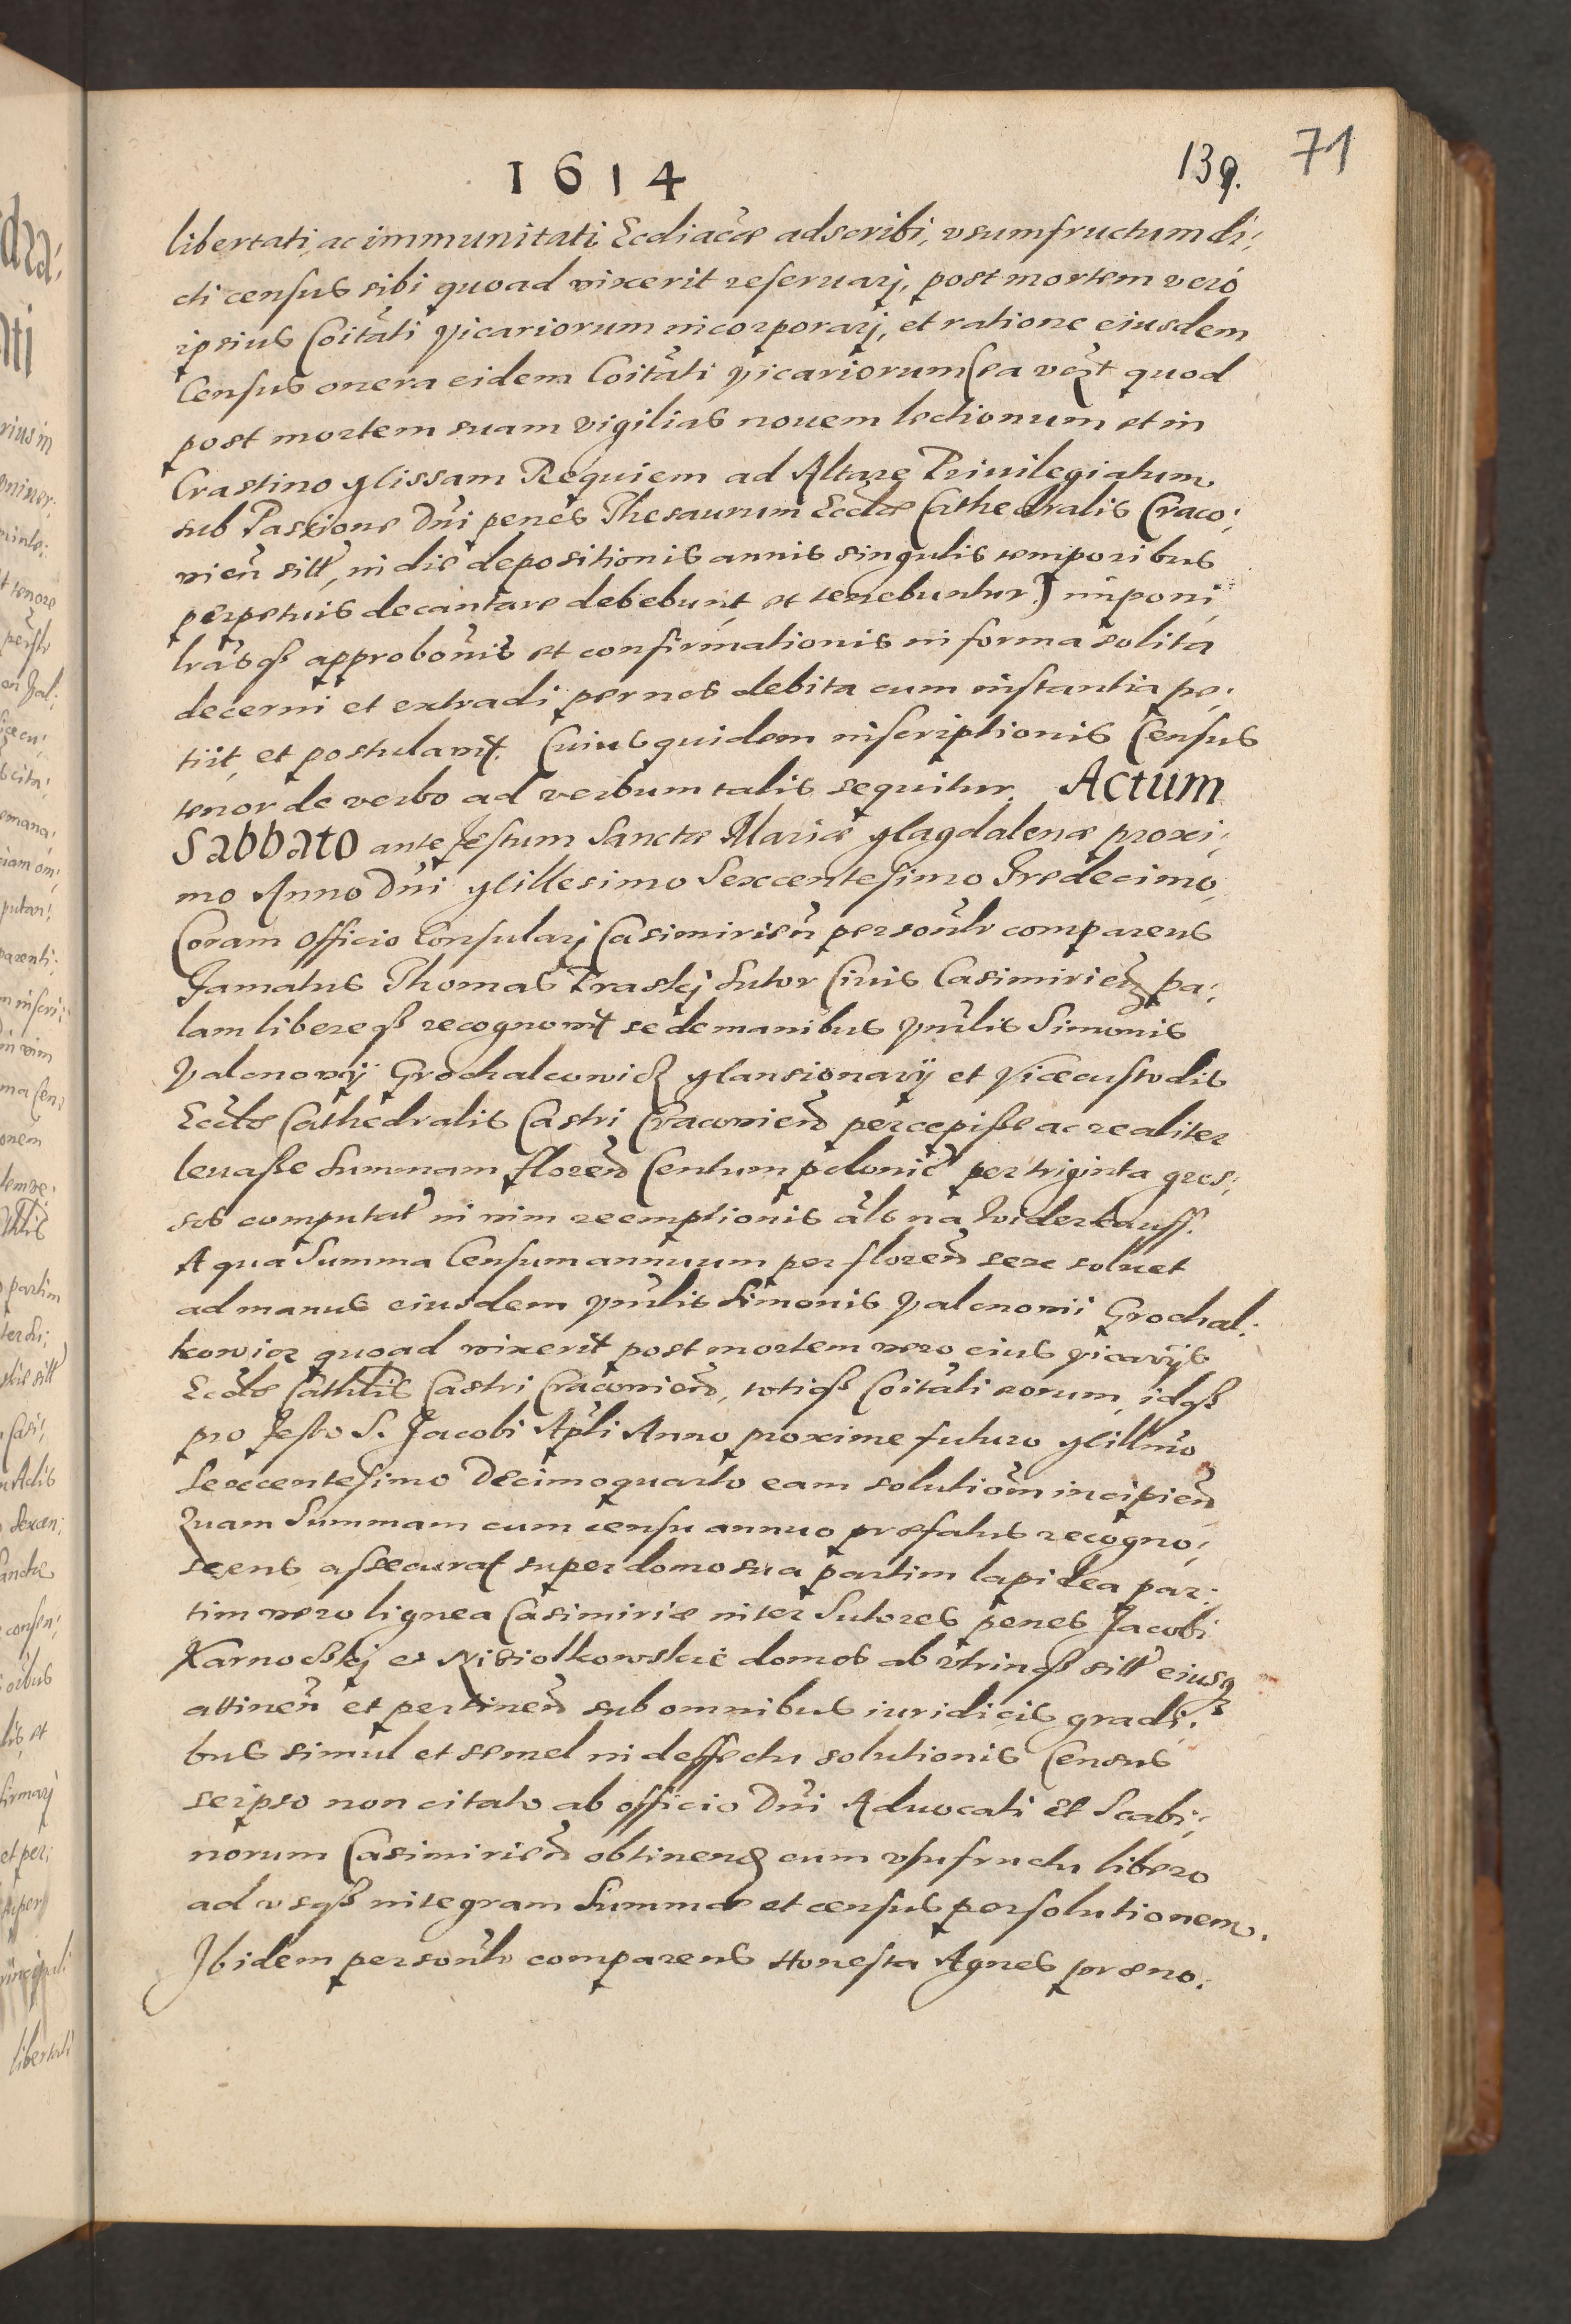 1614
139.
71
libertati, ac immunitati Ecclīacæ adscribi, vsumfructum di:
cti census sibi quoad vixerit reseruarj, post mortem verò
ipsius Coītāti Vicariorum incorporarj, et ratione eiusdem
Census onera eidem Coītāti Vicariorum (ea vēzt quod
post mortem suam vigilias nouem lectionum et in
Crastino Missam Requiem ad Altare Priuilegiatum
sub Passione Dn̄i penes Thesaurum Eccl̄æ Cathedralis Craco:
vien̄ sitt̄, in die depositionis annis singulis temporibus
perpetuis decantare debebunt, et tenebuntur) imponi
lr̄asq3 approbōnis et confirmationis in forma solita
decerni et extradi per nos debita cum instantia pe:
tiit, et postulavit. Cuius quidem inscriptionis Census
tenor de verbo ad verbum talis sequitur. Actum
Sabbato ante festum Sanctæ Mariæ Magdalenæ proxi:
mo Anno Dn̄i Millesimo Sexcentesimo Tredecimo,
Coram Officio Consularj Casimirien̄ personlr̄ comparens
Famatus Thomas Praskj Sutor Civis Casimirien̄ pa:
lam libereq3 recognovit se de manibus Vn̄rlis Simonis
Valenovij Grochalcowicz Mansionarij et Vicecustodis
Eccl̄æ Cathedralis Castri Cracovien̄ percepisse ac realiter
leuasse Summam floren̄ Centum polonic̄ per triginta gros:
sos computat̄ in vim reemptionis al̄s na widerkauff.
A qua Summa Censum annuum per floren̄ sex soluet
ad manus eiusdem Vn̄rlis Simonis Valenovii Grochal:
kowicz quoad vixerit post mortem vero eius vicarijs
Eccl̄æ Cathlis Castri Cracovien̄, totiq3 Coītāti eorum, idq3
pro festo S. Jacobi Apl̄i Anno proxime futuro Millmo
Sexcentesimo Decimoquarto eam solutiōm incipien̄
Quam Summam cum censu annuo præfatus recogno:
scens assecurat super domo sua partim lapidea par:
tim vero lignea Casimiriæ inter Sutores penes Jacobi
et domos ab vtrinq3 sitt̄ eiusq3
attinen̄ et pertinen̄ sub omnibus iuridicis gradi:
bus simul et semel in deffectu solutionis Census
seipso non citato ab officio Dn̄i Aduocati et Scabi:
norum Casimirien̄ obtinend cum vsufructu libero
ad vsq3 integram Summæ et census persolutionem.
Ibidem personlr̄ comparens Honesta Agnes præno: